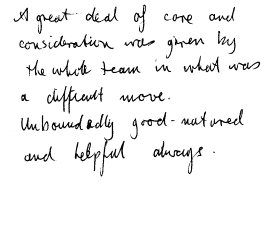 A great deal of care and
consideration was given by
the whole team in what was
a difficult move.
Unboundedly good-natured
and helpful always.